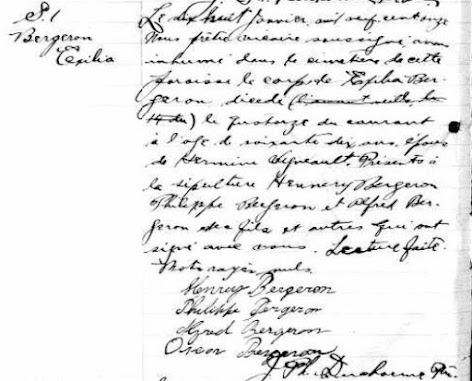 S. 1
Bergeron
Exilia
Le dix huit Janvier, mil neuf cent onze
Nous prêtre vicaire soussigné, avons
inhumé dans le cimetière de cette
paroisse le corps de Exilia Ber-
geron, décédé
14 du) le quatorze du courant
à l'age de soixante dix ans, époux
de Hermine Vigneault. Présents à
la sépulture Hennery Bergeron
Philippe Bergeron et Alfred Ber-
geron ses fils et autres qui ont
signé avec nous. Lecture faite.
Mots rayés nuls.
Henry Bergeron
Philippe Bergeron
Alfred Bergeron
Oscar Bergeron
J. Ph. Ptre.